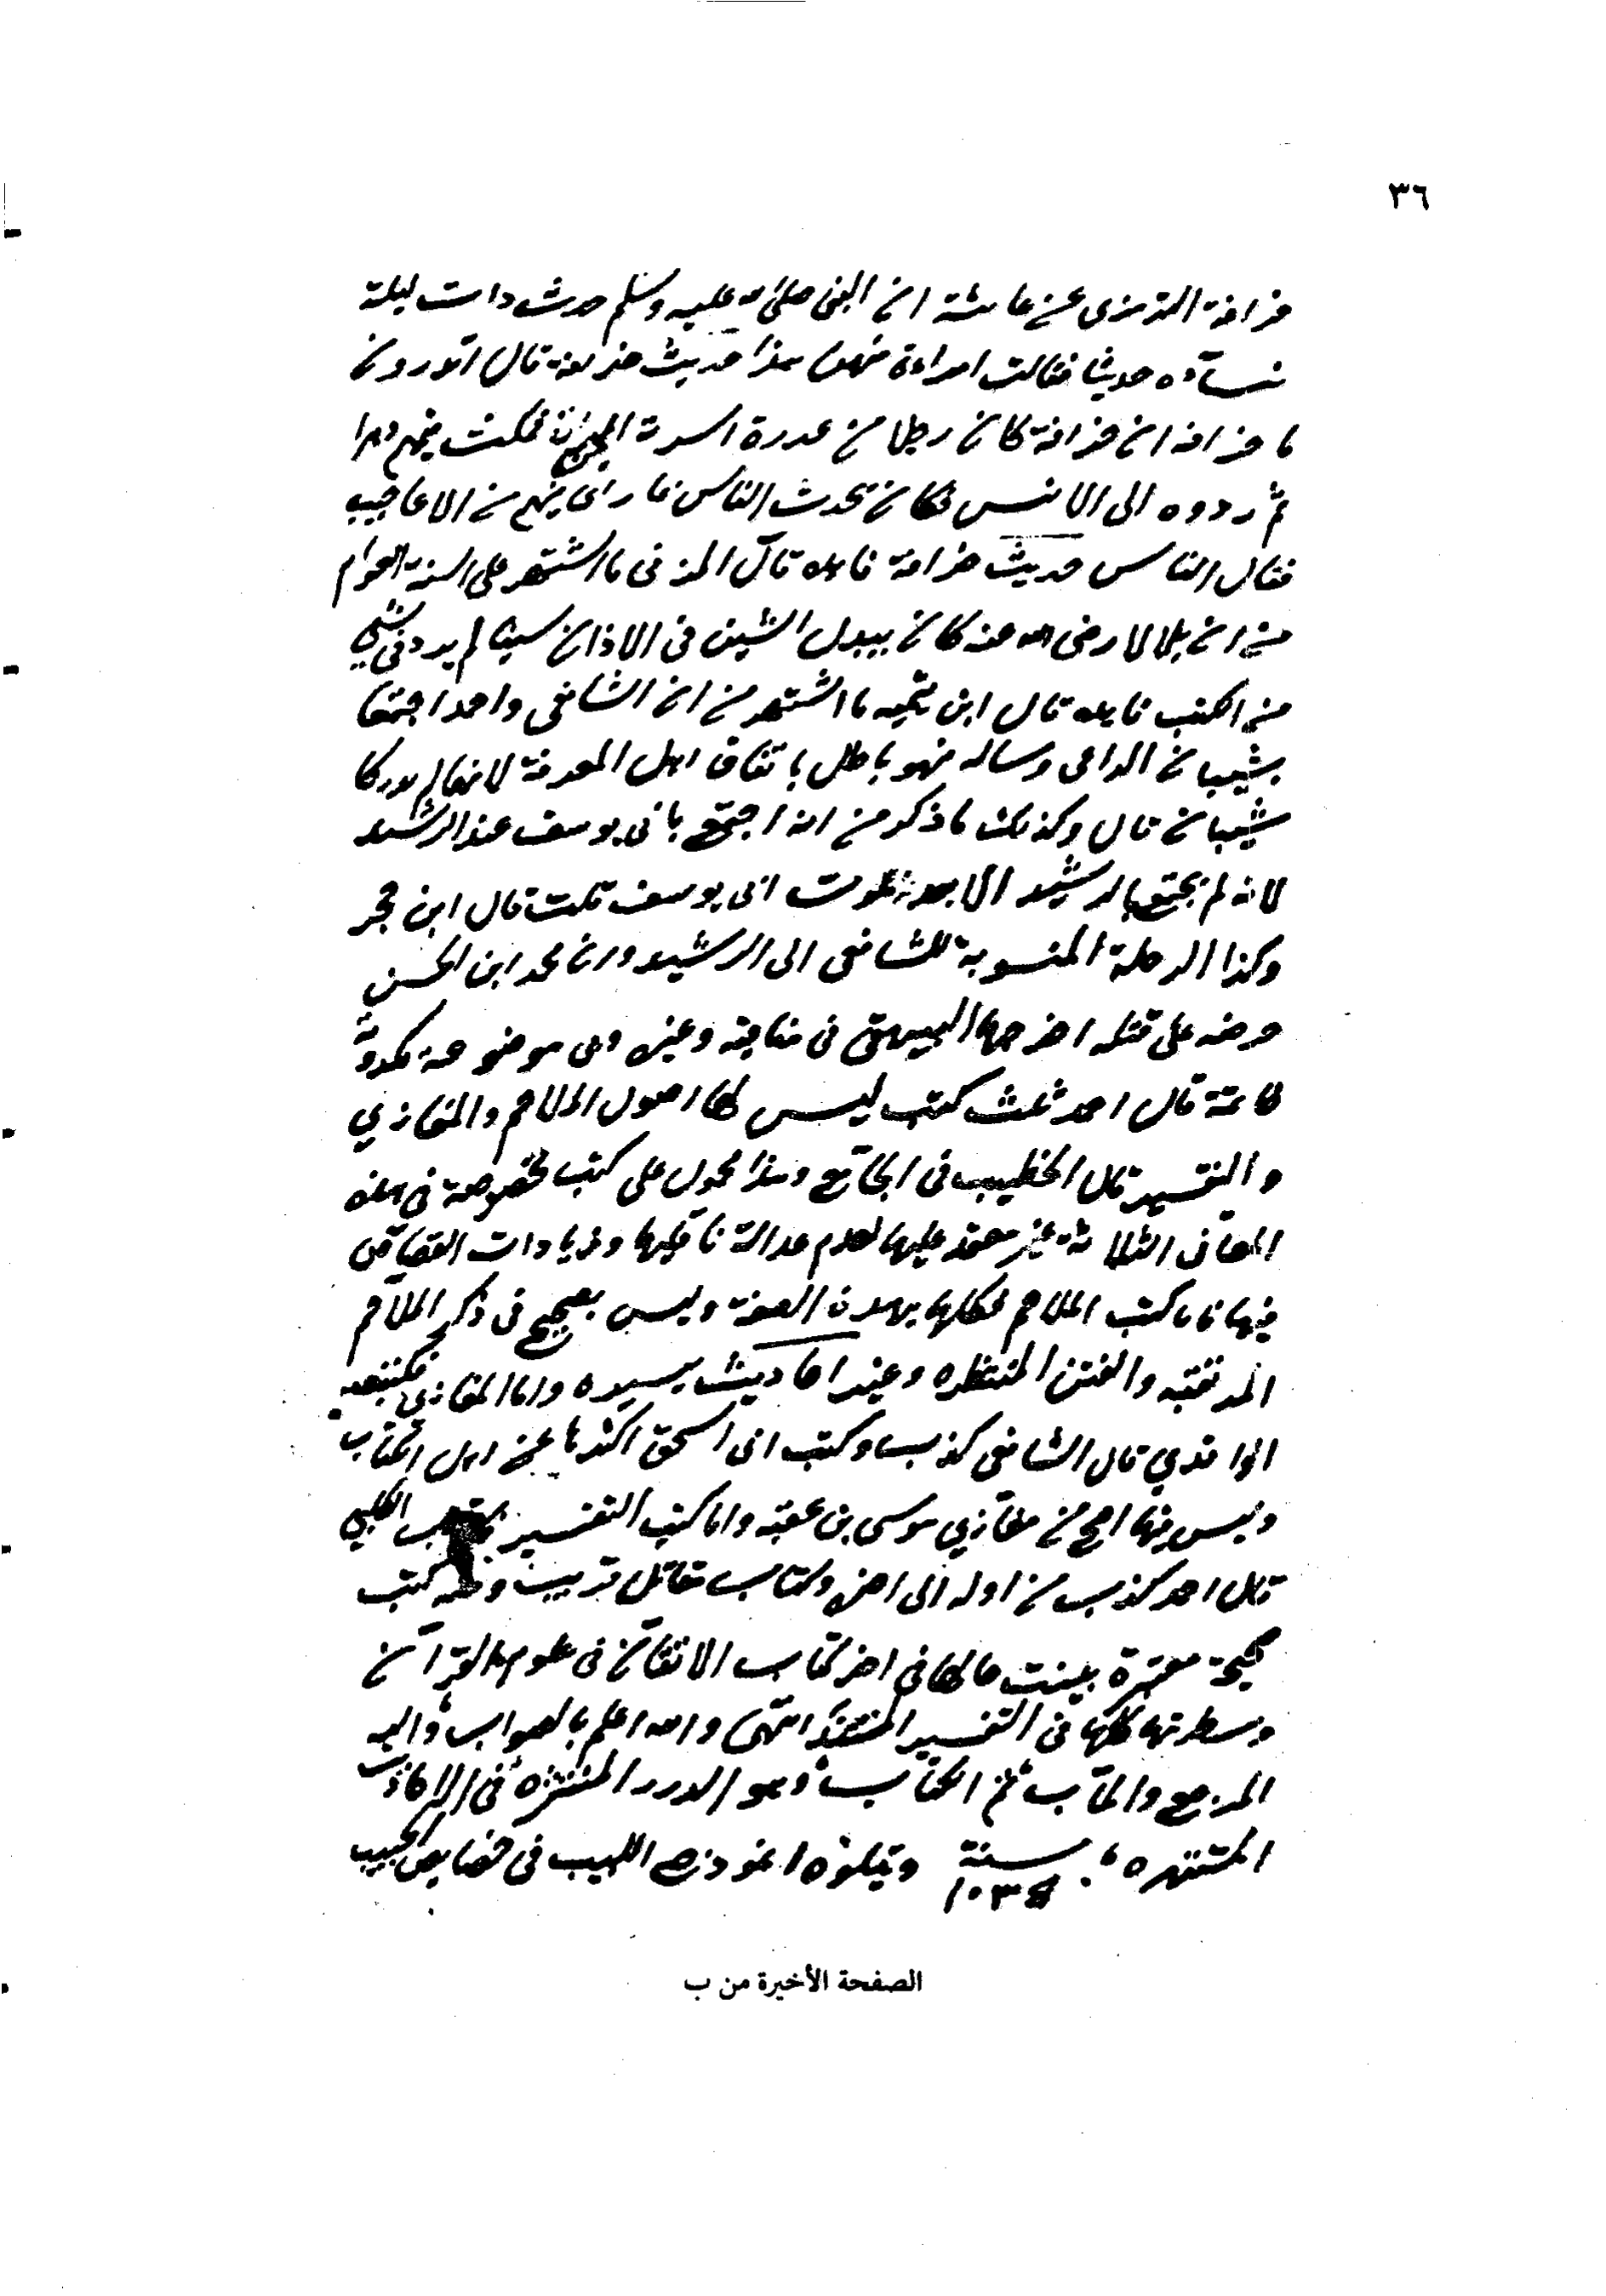 ٣٦
خرافة الترمذى عن عائشة ان النبى صلى الله عليه وسلم حدث ذات ليلة
نسآءه حديثا فقالت امراءة منهن هذا حديث خرافة قال اتدرون
ما خرافة ان خرافة كان رجلا من عذرة اسرته الجن فمكث فيهم دهرا
ثم ردوه الى الانس فكان يحدث الناس بما راى فيهم من الاعاجيب
فقال الناس حديث خرافة فايده قال المزنى ما اشتهر على السنة العوام
من ان بلالا رضى الله عنه كان يبدل الشين فى الاذان سينا لم يرد فى شئ
من الكتب فايده قال ابن تيميه ما اشتهر من ان الشافعى واحمد اجتمعا
بشيبان الراعى وسالاه فهو باطل باتفاق اهل المعرفة لانهما لم يدركا
شيبان قال وكذلك ما ذكر من انه اجتمع بابى يوسف عند الرشيد
لانه لم يجتمع بالرشيد الا بعد موت ابى يوسف قلت قال ابن حجر
وكذا الرحلة المنسوبة للشافعى الى الرشيد وان محمد ابن الحسن
حرضه على قتله اخرجها البيهقى فى مناقبه وغيره وهى موضوعة مكذوبة
خاتمة قال احمد ثلث كتب ليس لها اصول الملاحم والمغازي
والتفسير قال الخطيب فى الجامع وهذا محمول على كتب مخصوصة فى هذه
المعانى الثلاثة غير معتمد عليها لعدم عدالة ناقليها وزيادات القصاص
فيها فاما كتب الملاحم فكلها بهذه الصفة وليس بصحيح فى ذكر الملاحم
المرتقبه والفتن المنتظره وغير احاديث يسيره واما المغازي فكتب
الواقدي قال الشافعى كذب وكتب ابى اسحق اكثرها عن اهل الكتاب
وليس فيها اصح من مغازي موسى بن عقبه واما كتب التفسير الكلبي
قال احمد كذب من اوله الى اخره وكتاب مقاتل قريب كتب
صحيحة معتبرة بينت حالها فى اخر كتاب الاتقان فى علوم القرآن
وسطرتها كلها فى التفسير المسند انتهى والله اعلم بالصواب واليه
المرجع والمآب تم الكتاب وهو الدرر المنتثره فى الاحاديث
المشتهره سنة ١٠٣٤ ويتلوه انموذج اللبيب فى خصايص الحبيب
الصفحة الأخيرة من ب